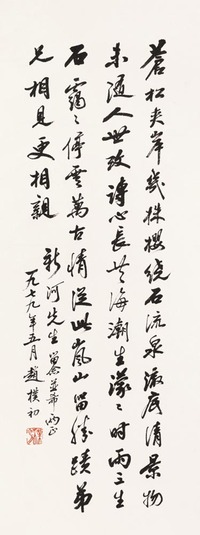 蒼松夹岸幾株櫻绕石流泉澈底清景物
未随人世改詩心長共海潮生濛濛时雨三生
石靄靄停雲萬古情從此嵐山留勝蹟弟
兄相見更相親
新河先生留念並希兩正
一九七九年五月趙樸初